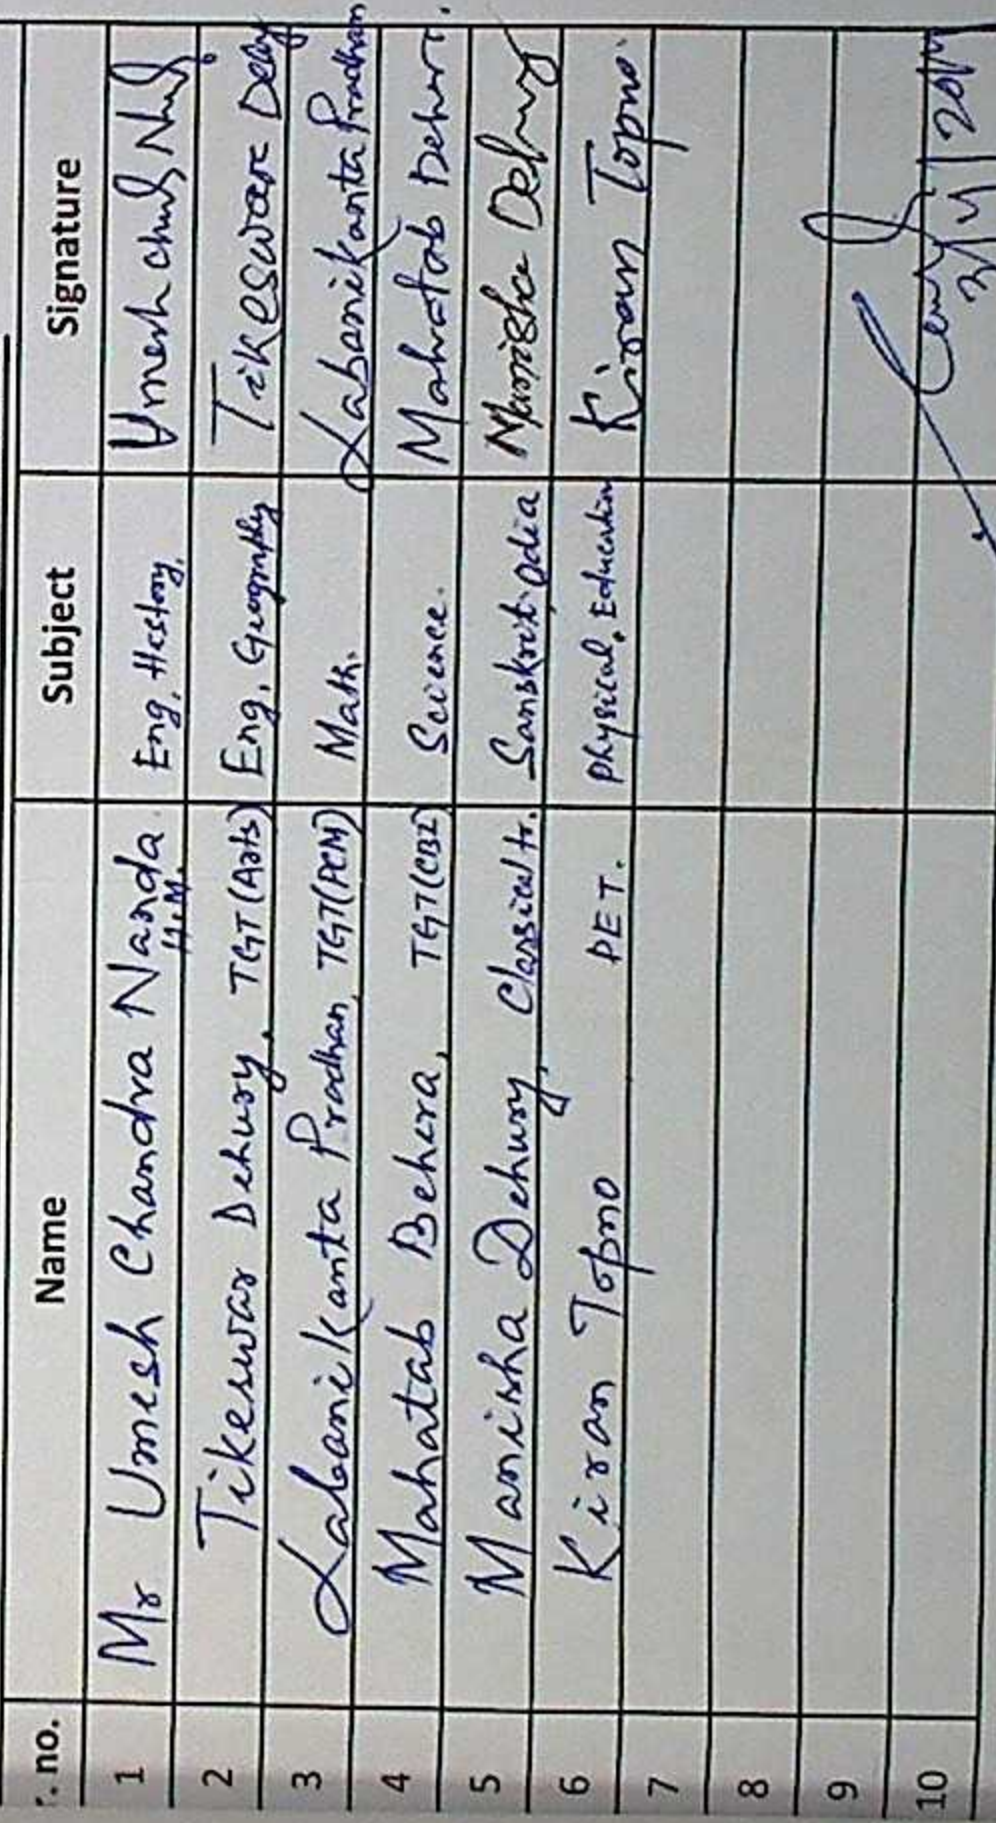 r. no. Name Subject Signature
1 Mr Umesh Chandra Nanda H.M. Eng, History, Umesh
2 Tikeswar Dehury, TGT (Arts) Eng, Geography Tikeswar Dehury
3 Labanikanta Pradhan, TGT (PCM) Math. Labanikanta Pradhan
4 Mahatab Behera, TGT (CBZ) Science. Mahatab Behera.
5 Manisha Dehury, Classical tr. Sanskrit, Odia Manisha Dehury
6 Kiran Topno PET. Physical Education Kiran Topno.
7
8
9
10